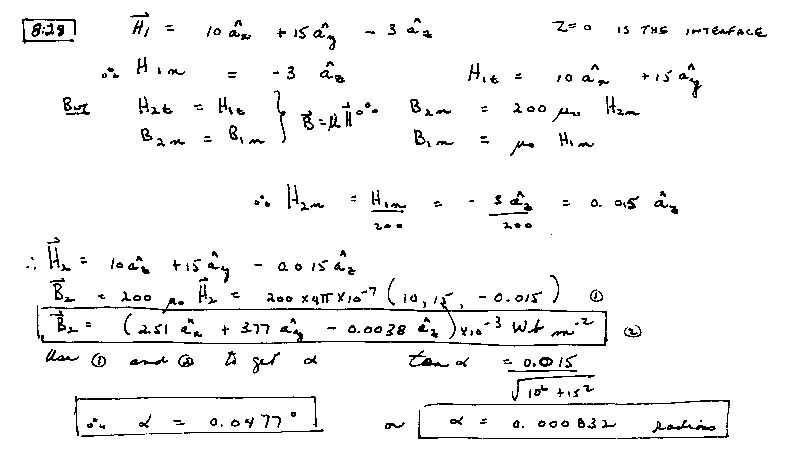 8:28 H⃗₁ = 10 âₓ + 15 â_y - 3 â_z Z=0 IS THE INTERFACE
∴ H₁ₙ = -3 â_z H₁ₜ = 10 âₓ + 15 â_y
But H₂ₜ = H₁ₜ } B⃗ = μH⃗ ∴ B₂ₙ = 200 μ₀ H₂ₙ
B₂ₙ = B₁ₙ B₁ₙ = μ₀ H₁ₙ
∴ H₂ₙ = H₁ₙ/200 = - 3 â_z/200 = 0.015 â_z
∴ H⃗₂ = 10 â_z + 15 â_y - 0.015 â_z
B⃗₂ = 200 μ₀ H⃗₂ = 200 × 4π × 10⁻⁷ (10, 15, -0.015) ①
B⃗₂ = (2.51 âₓ + 3.77 â_y - 0.0038 â_z) × 10⁻³ Wb m⁻² ②
Use ① and ② to get α tan α = 0.015/√(10² + 15²)
∴ α = 0.0477° or α = 0.000832 radians